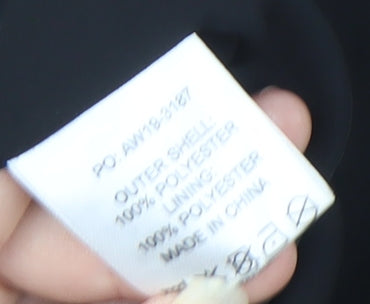 PO: AW19-3187
OUTER SHELL:
100% POLYESTER
LINING:
100% POLYESTER
MADE IN CHINA